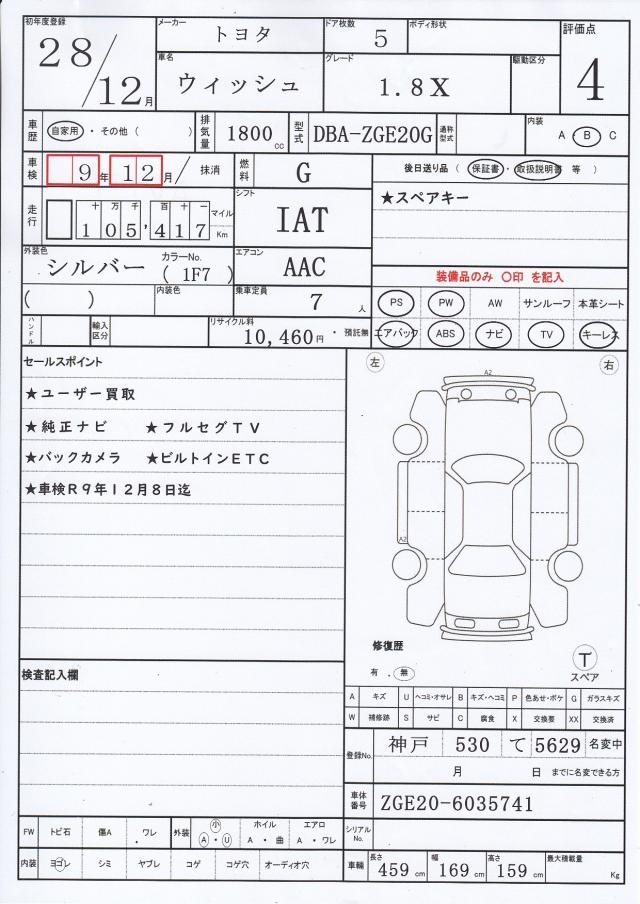 初年度登録 28/12月 メーカー トヨタ ドア枚数 5 ボディ形状 評価点 4
車名 ウィッシュ グレード 1.8X 駆動区分
車歴 自家用・その他( ) 排気量 1800cc 型式 DBA-ZGE20G 通称型式 内装 A B C
車検 9年12月/抹消 燃料 G 後日送り品(保証書・取扱説明書 等)
走行 十万千百十一 105,417 マイル Km シフト IAT ★スペアキー
外装色 シルバー カラーNo.(1F7) エアコン AAC
装備品のみ 〇印 を記入
( ) 内装色 乗車定員 7人 PS PW AW サンルーフ 本革シート
ハンドル 輸入区分 リサイクル料 10,460円・預託無 エアバック ABS ナビ TV キーレス
セールスポイント 左 右
★ユーザー買取 A2
★純正ナビ ★フルセグTV
★バックカメラ ★ビルトインETC
★車検R9年12月8日迄
A2
修復歴
有・無 T スペア
検査記入欄
A キズ U ヘコミ・オサレ B キズ・ヘコミ P 色あせ・ボケ G ガラスキズ
W 補修跡 S サビ C 腐食 X 交換要 XX 交換済
登録No. 神戸 530 て 5629 名変中
月 日 までに名変できる方
車体番号 ZGE20-6035741
FW トビ石 傷A ワレ 外装 小 A・U ホイル A・曲 エアロ A・ワレ シリアルNo.
内装 ヨゴレ シミ ヤブレ コゲ コゲ穴 オーディオ穴 車輌 長さ 459cm 幅 169cm 高さ 159cm 最大積載量 Kg